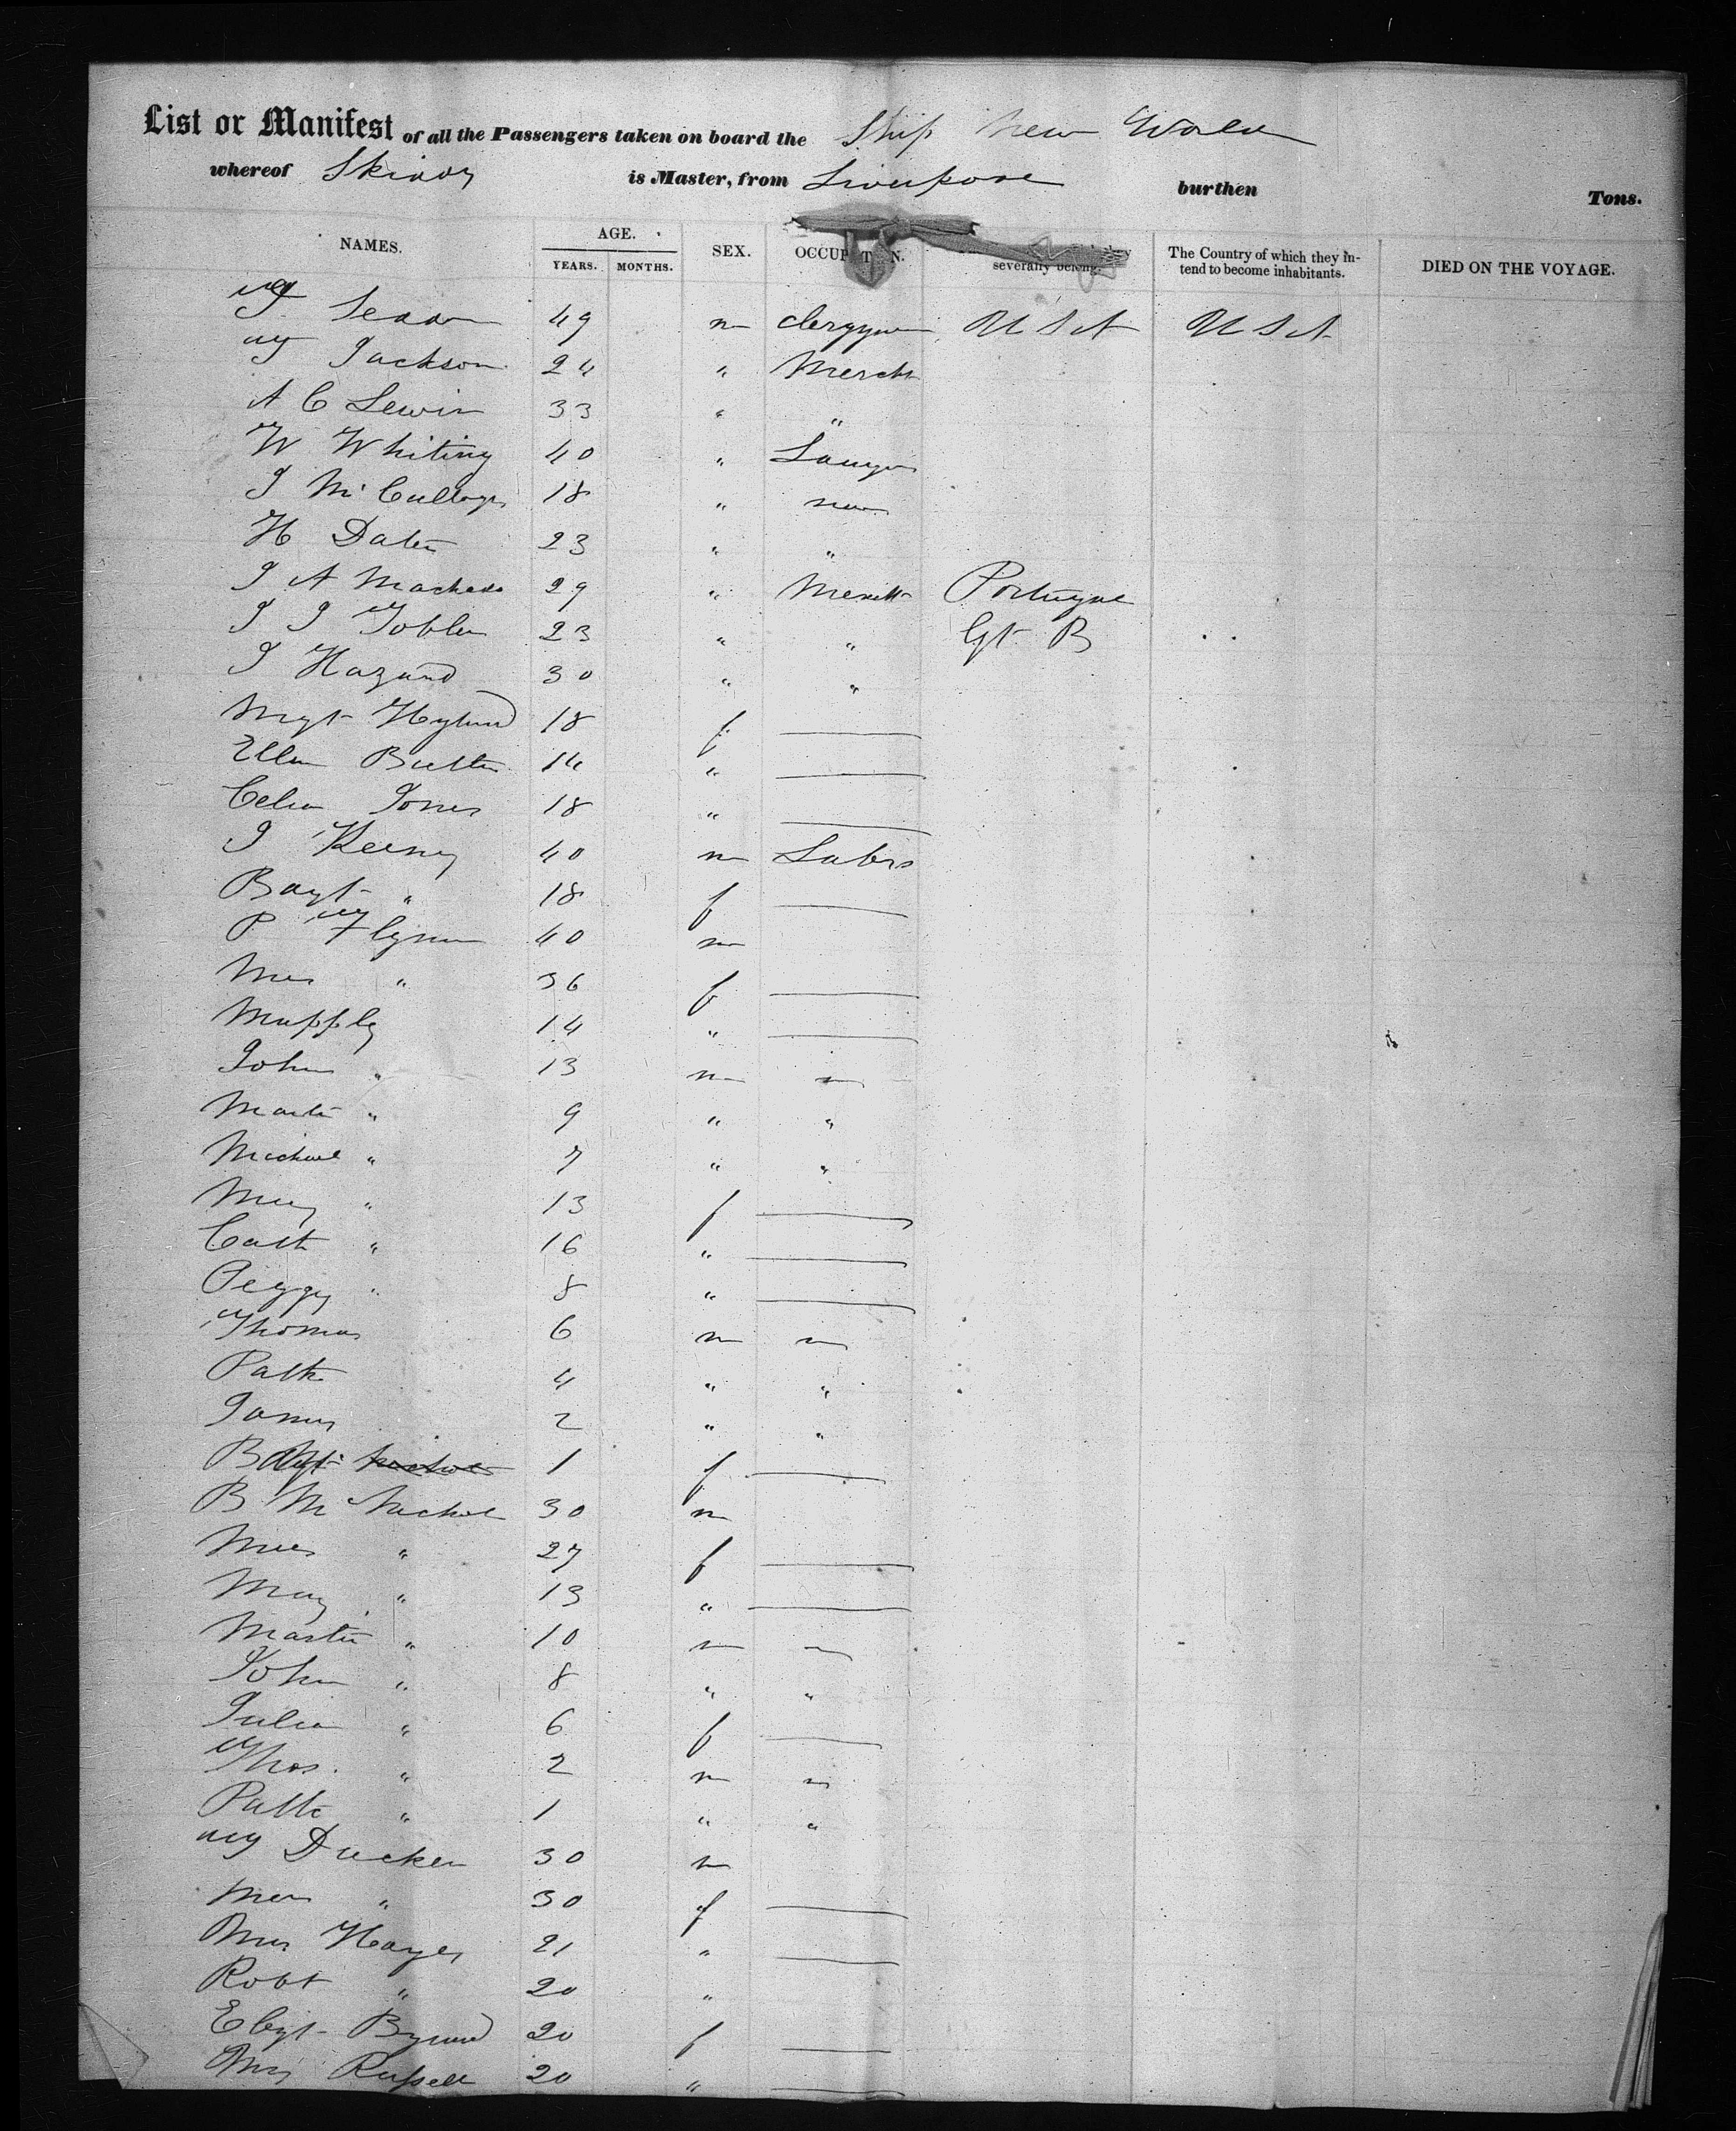 List or Manifest of all the Passengers taken on board the Ship New World
whereof is Master, from Liverpool burthen Tons.
NAMES. AGE. SEX. OCCUPATION. severally belong. The Country of which they intend to become inhabitants. DIED ON THE VOYAGE.
YEARS. MONTHS.
49 m clergyman U S A U S A
T Jackson 24 " Mercht
A C Lewis 33 " "
W Whiting 40 " Lawyer
J Mc 18 "
H 23 " "
J A Machado 29 " Mercht Portugal
J J Tobler 23 " " Gt B
J Hazard 30 " "
Mgt 18 f
Ellen Butler 14 "
Celia Jones 18 "
J Keeny 40 m Labr
Bdgt " 18 f
P Flynn 40 m
Mrs " 36 f
14 "
John " 13 m
Martin " 9 " "
Michael " 7 " "
Mary " 13 f
Cath " 16 "
Peggy " 8 "
Thomas 6 m
Patk 4 " "
James 2 " "
Bdgt 1 f
B McNichol 30 m
Mrs " 27 f
Mary " 13 "
Martin " 10 m
John " 8 " "
Julia " 6 f
Thos. " 2 m
Patk " 1 " "
30 m
Mrs " 30 f
Mrs Hayes 21 "
Robt " 20 "
20 f
Russell 20 "